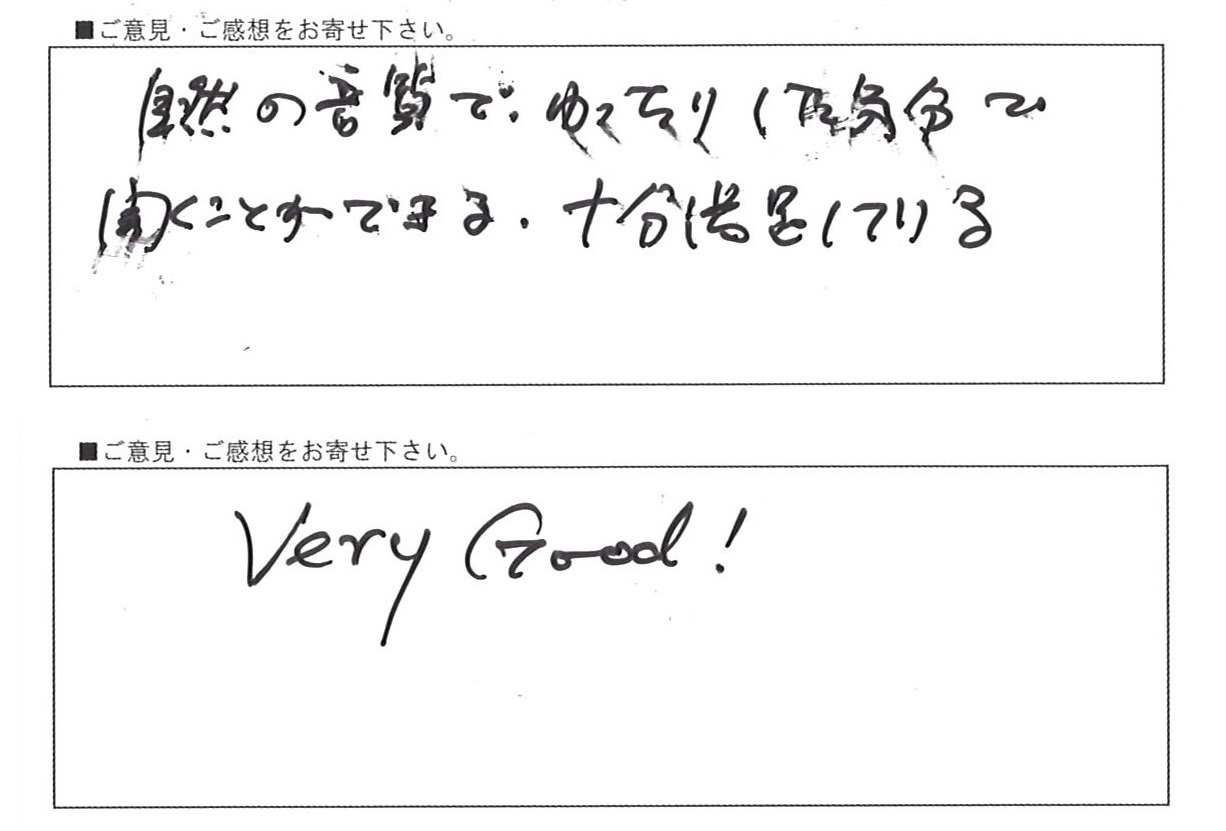 ■ご意見・ご感想をお寄せ下さい。
自然の音質で、ゆったりした気分で
聞くことができる。十分満足している
■ご意見・ご感想をお寄せ下さい。
Very Good!